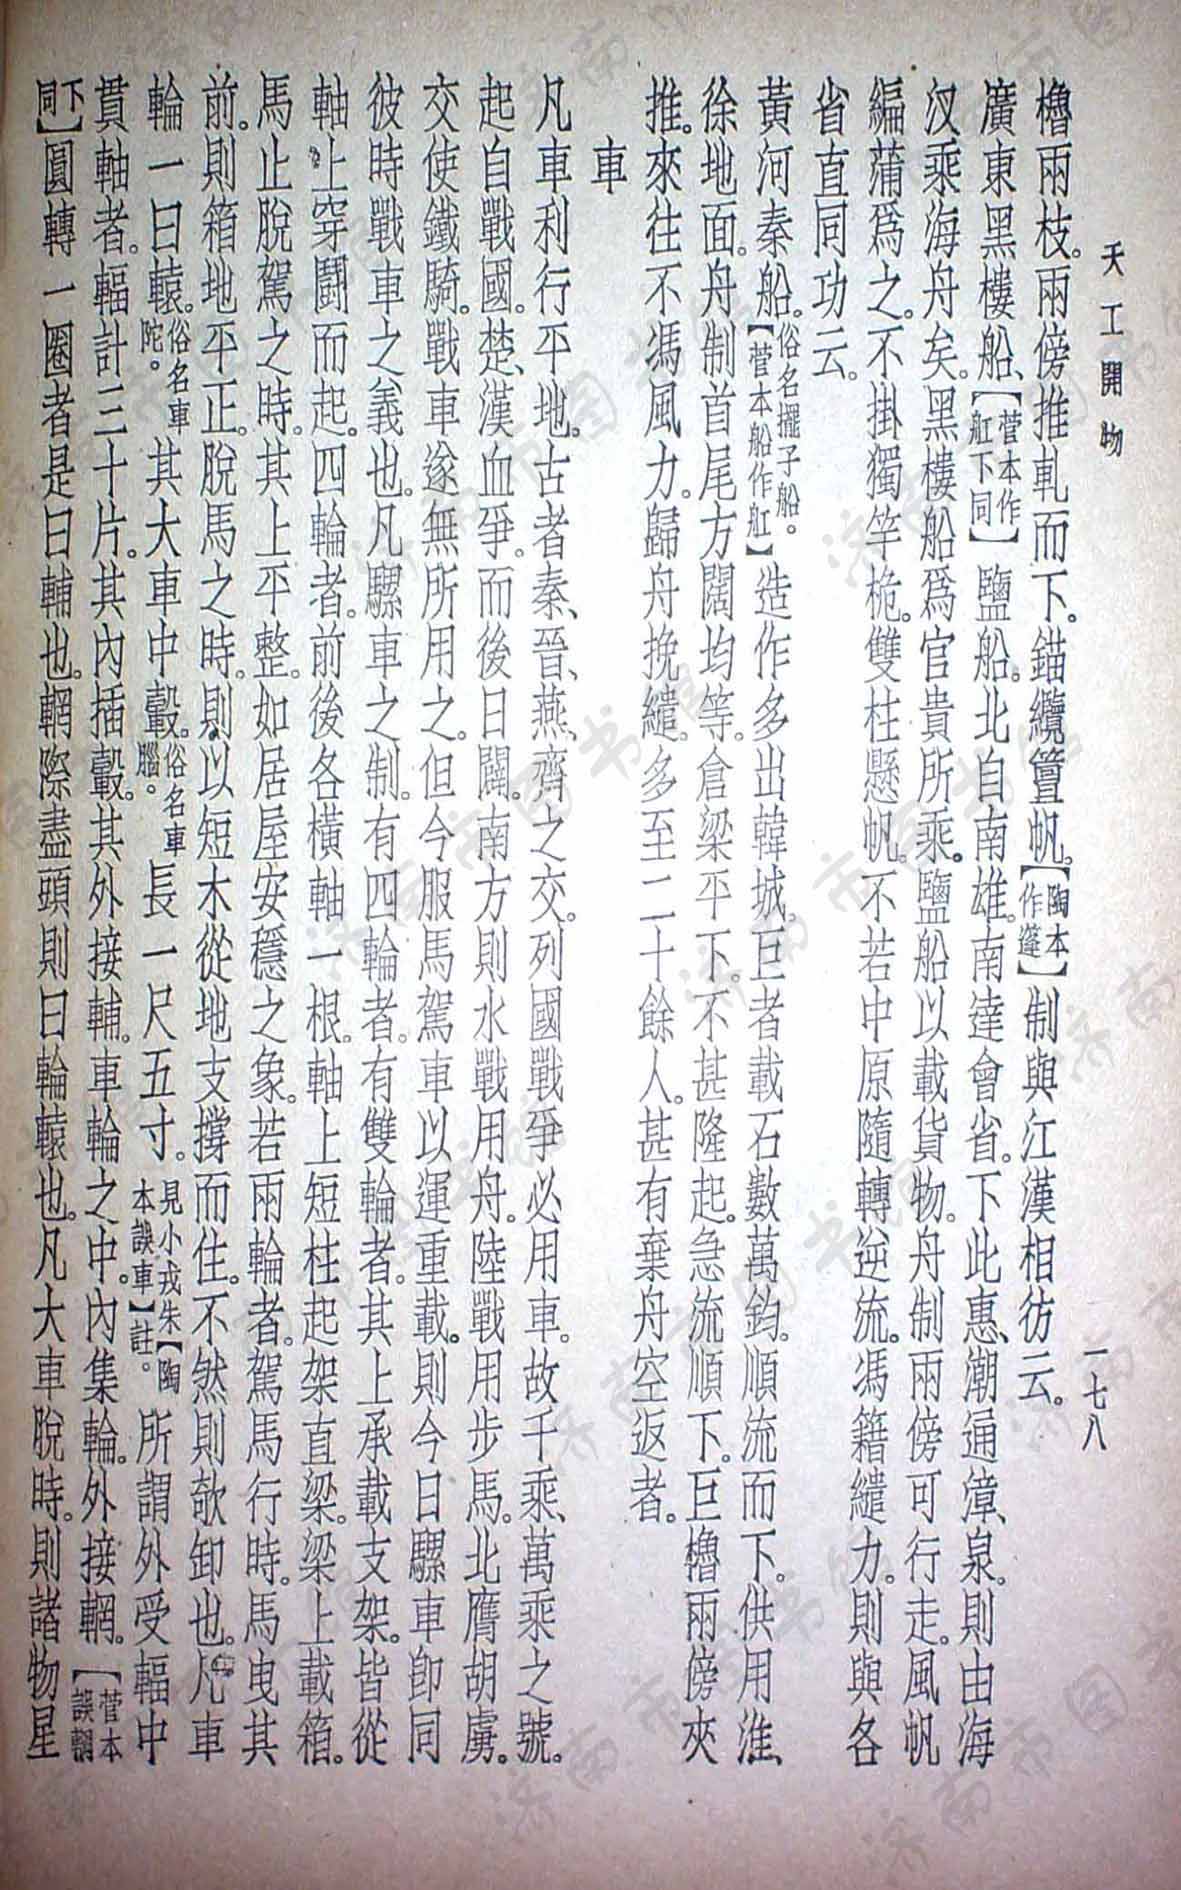 天工開物
一七八
櫓兩枝。兩傍推軋而下。錨纜簟帆。【陶本作篷】制與江漢相彷云。
廣東黑樓船、【菅本作舡下同】鹽船。北自南雄。南達會省。下此惠、潮通漳、泉。則由海
汊乘海舟矣。黑樓船爲官貴所乘。鹽船以載貨物。舟制兩傍可行走。風帆
編蒲爲之。不掛獨竿桅。雙柱懸帆。不若中原隨轉。逆流。馮籍纜力。則與各
省直同功云。
黃河秦船。俗名擺子船。【菅本船作舡】造作多出韓城。巨者載石數萬鈞。順流而下。供用淮、
徐地面。舟制首尾方闊均等。倉梁平下。不甚隆起。急流順下。巨櫓兩傍夾
推。來往不馮風力。歸舟挽纜。多至二十餘人。甚有棄舟空返者。
車
凡車利行平地。古者秦、晉、燕、齊之交。列國戰爭必用車。故千乘、萬乘之號。
起自戰國。楚、漢血爭。而後日闢。南方則水戰用舟。陸戰用步馬。北膺胡虜。
交使鐵騎。戰車遂無所用之。但今服馬駕車以運重載。則今日騾車卽同
彼時戰車之義也。凡騾車之制。有四輪者。有雙輪者。其上承載支架。皆從
軸上穿鬭而起。四輪者。前後各橫軸一根。軸上短柱起架直梁。梁上載箱。
馬止脫駕之時。其上平整。如居屋安穩之象。若兩輪者。駕馬行時。馬曳其
前。則箱地平正。脫馬之時。則以短木從地支撐而住。不然則欹卸也。凡車
輪一曰轅。俗名車陀。其大車中轂。俗名車腦。長一尺五寸。見小戎朱【陶本誤車】註。所謂外受輻中
貫軸者。輻計三十片。其內插轂。其外接輔。車輪之中。內集輪。外接輞。【菅本誤輞
下同】圓轉一圈者是曰輔也。輞際盡頭則曰輪轅也。凡大車脫時。則諸物星